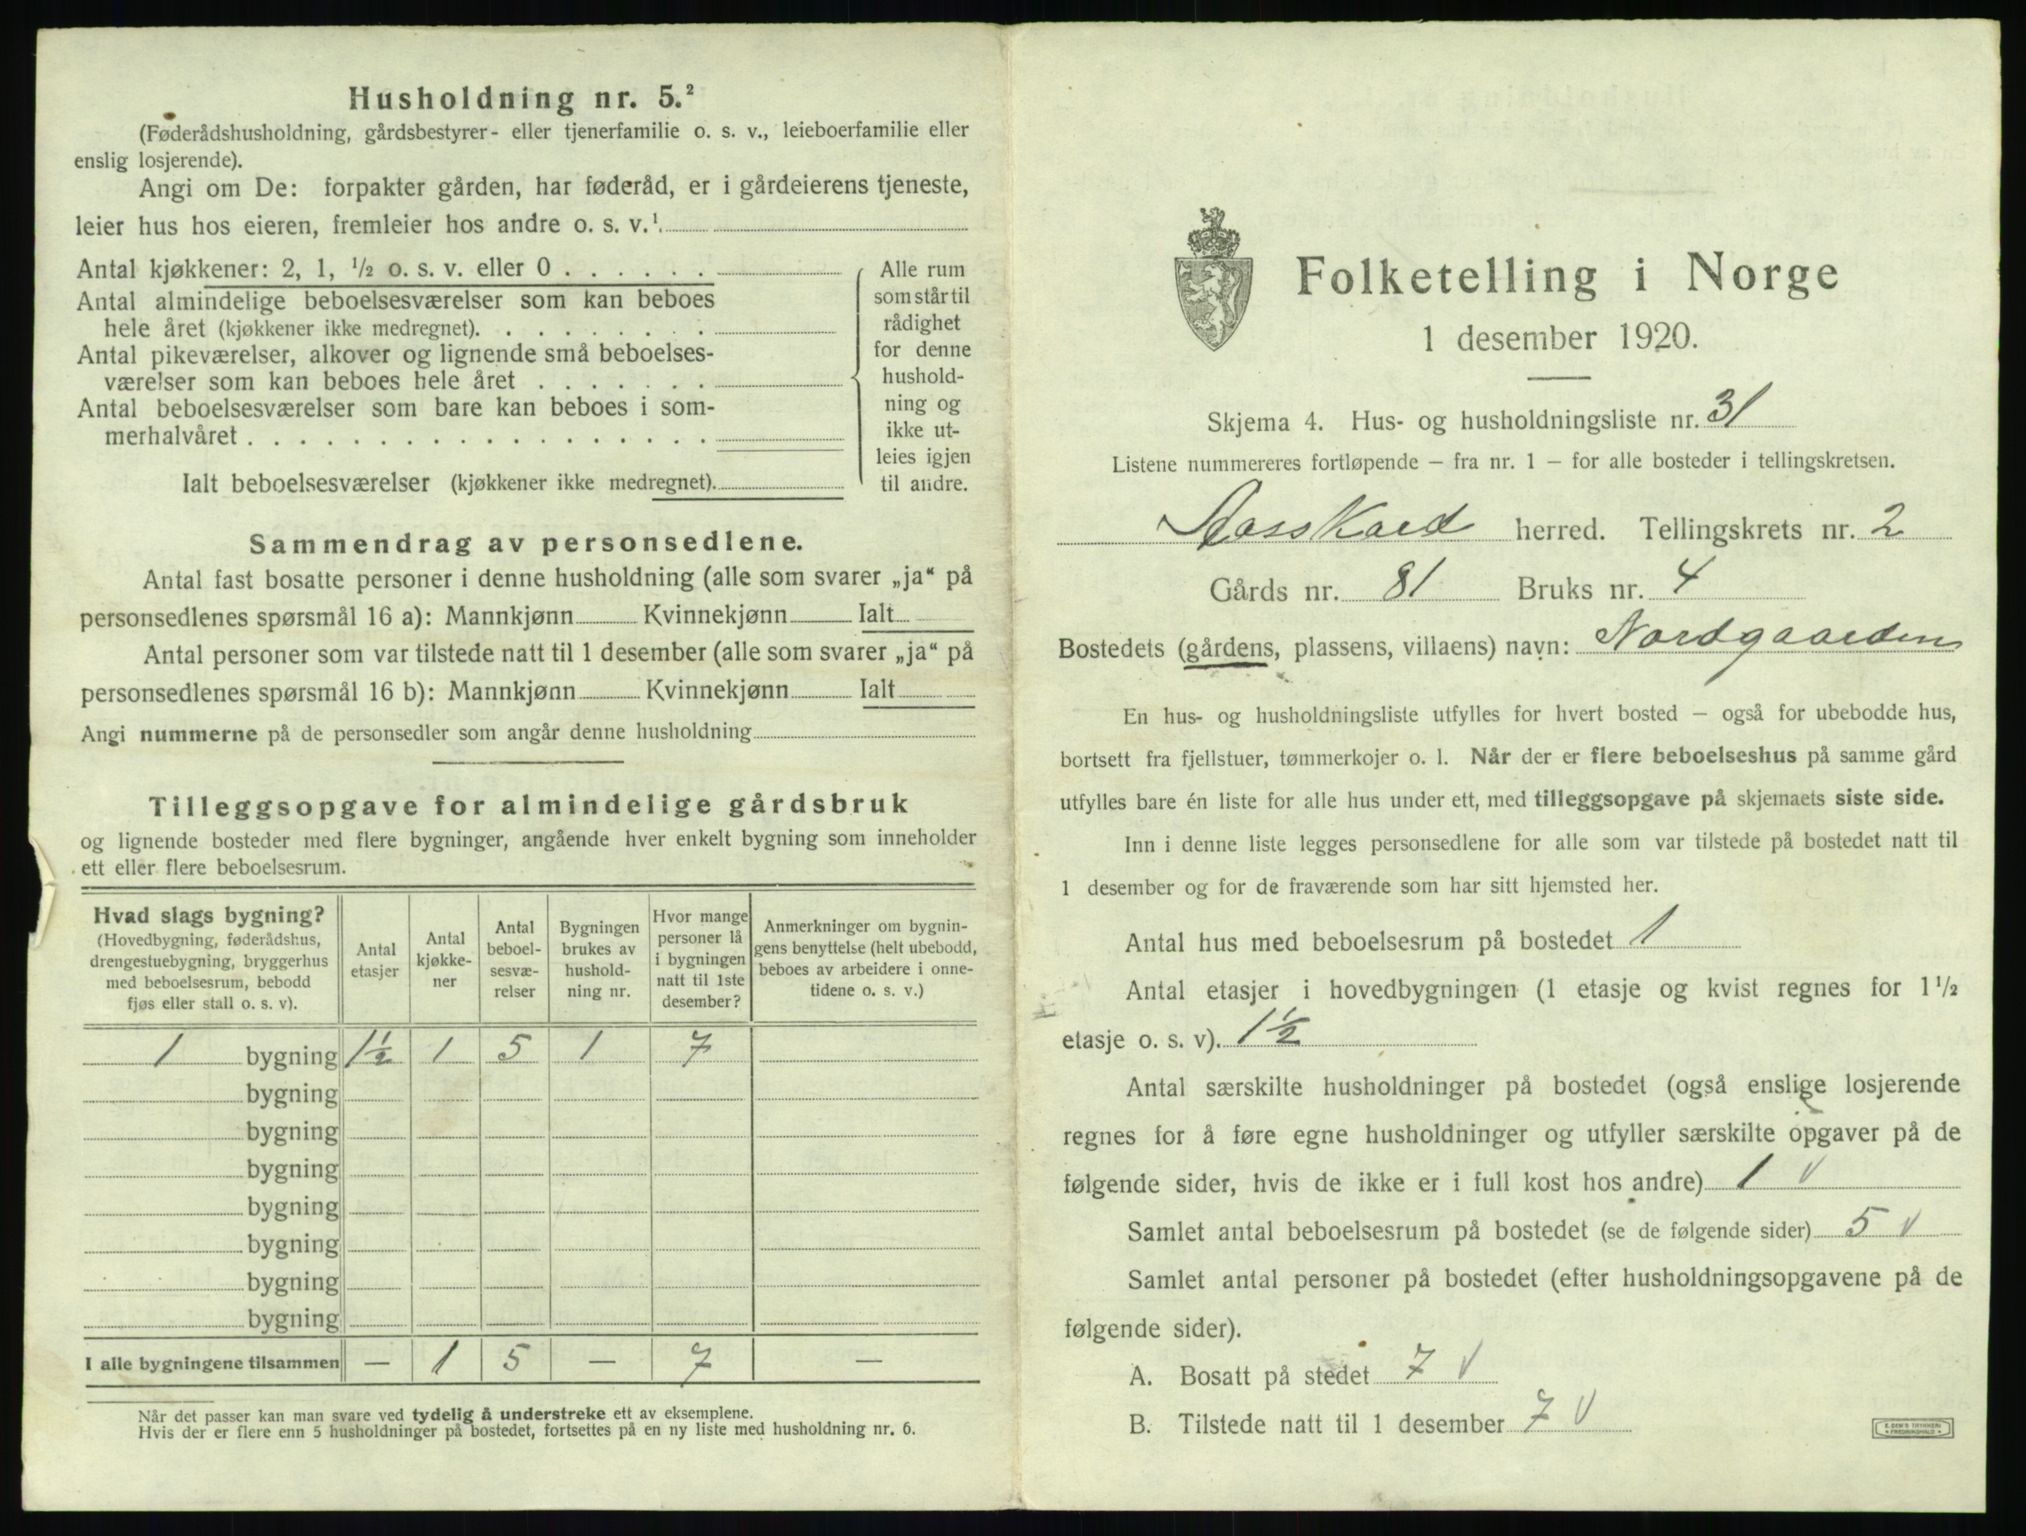 Husholdning nr. 5.²
(Føderådshusholdning, gårdsbestyrer- eller tjenerfamilie o. s. v., leieboerfamilie eller
enslig losjerende).
Angi om De: forpakter gården, har føderåd, er i gårdeierens tjeneste,
leier hus hos eieren, fremleier hos andre o. s. v.¹
Antal kjøkkener: 2, 1, ½ o. s. v. eller 0 . . . . . .
Antal almindelige beboelsesværelser som kan beboes
hele året (kjøkkener ikke medregnet). . . . . . . . .
Antal pikeværelser, alkover og lignende små beboelses-
værelser som kan beboes hele året . . . . . . .
Antal beboelsesværelser som bare kan beboes i som-
merhalvåret . . . . . . . . . . . . . . . . . .
Ialt beboelsesværelser (kjøkkener ikke medregnet).
Alle rum
som står til
rådighet
for denne
hushold-
ning og
ikke ut-
leies igjen
til andre.
Sammendrag av personsedlene.
Antal fast bosatte personer i denne husholdning (alle som svarer „ja“ på
personsedlenes spørsmål 16 a): Mannkjønn Kvinnekjønn Ialt
Antal personer som var tilstede natt til 1 desember (alle som svarer „ja“ på
personsedlenes spørsmål 16 b): Mannkjønn Kvinnekjønn Ialt
Angi nummerne på de personsedler som angår denne husholdning
Tilleggsopgave for almindelige gårdsbruk
og lignende bosteder med flere bygninger, angående hver enkelt bygning som inneholder
ett eller flere beboelsesrum.
Hvad slags bygning?
(Hovedbygning, føderådshus,
drengestuebygning, bryggerhus
med beboelsesrum, bebodd
fjøs eller stall o. s. v).
Antal
etasjer
Antal
kjøkke-
ner
Antal
beboel-
sesvæ-
relser
Bygningen
brukes av
hushold-
ning nr.
Hvor mange
personer lå
i bygningen
natt til 1ste
desember?
Anmerkninger om bygnin-
gens benyttelse (helt ubebodd,
beboes av arbeidere i onne-
tidene o. s. v.)
1 bygning 1½ 1 5 1 7
bygning
bygning
bygning
bygning
bygning
bygning
bygning
I alle bygningene tilsammen — 1 5 — 7 —
Når det passer kan man svare ved tydelig å understreke ett av eksemplene.
Hvis der er flere enn 5 husholdninger på bostedet, fortsettes på en ny liste med husholdning nr. 6.
Folketelling i Norge
1 desember 1920.
Skjema 4. Hus- og husholdningsliste nr. 31
Listene nummereres fortløpende – fra nr. 1 – for alle bosteder i tellingskretsen.
Aasskard herred. Tellingskrets nr. 2
Gårds nr. 81 Bruks nr. 4
Bostedets (gårdens, plassens, villaens) navn: Nordgaarden
En hus- og husholdningsliste utfylles for hvert bosted – også for ubebodde hus,
bortsett fra fjellstuer, tømmerkojer o. l. Når der er flere beboelseshus på samme gård
utfylles bare én liste for alle hus under ett, med tilleggsopgave på skjemaets siste side.
Inn i denne liste legges personsedlene for alle som var tilstede på bostedet natt til
1 desember og for de fraværende som har sitt hjemsted her.
Antal hus med beboelsesrum på bostedet 1
Antal etasjer i hovedbygningen (1 etasje og kvist regnes for 1½
etasje o. s. v). 1½
Antal særskilte husholdninger på bostedet (også enslige losjerende
regnes for å føre egne husholdninger og utfyller særskilte opgaver på de
følgende sider, hvis de ikke er i full kost hos andre) 1 v
Samlet antal beboelsesrum på bostedet (se de følgende sider) 5 v
Samlet antal personer på bostedet (efter husholdningsopgavene på de
følgende sider).
A. Bosatt på stedet 7 v
B. Tilstede natt til 1 desember 7 v
E. DEM'S TRYKKERI
FREDRIKSHALD